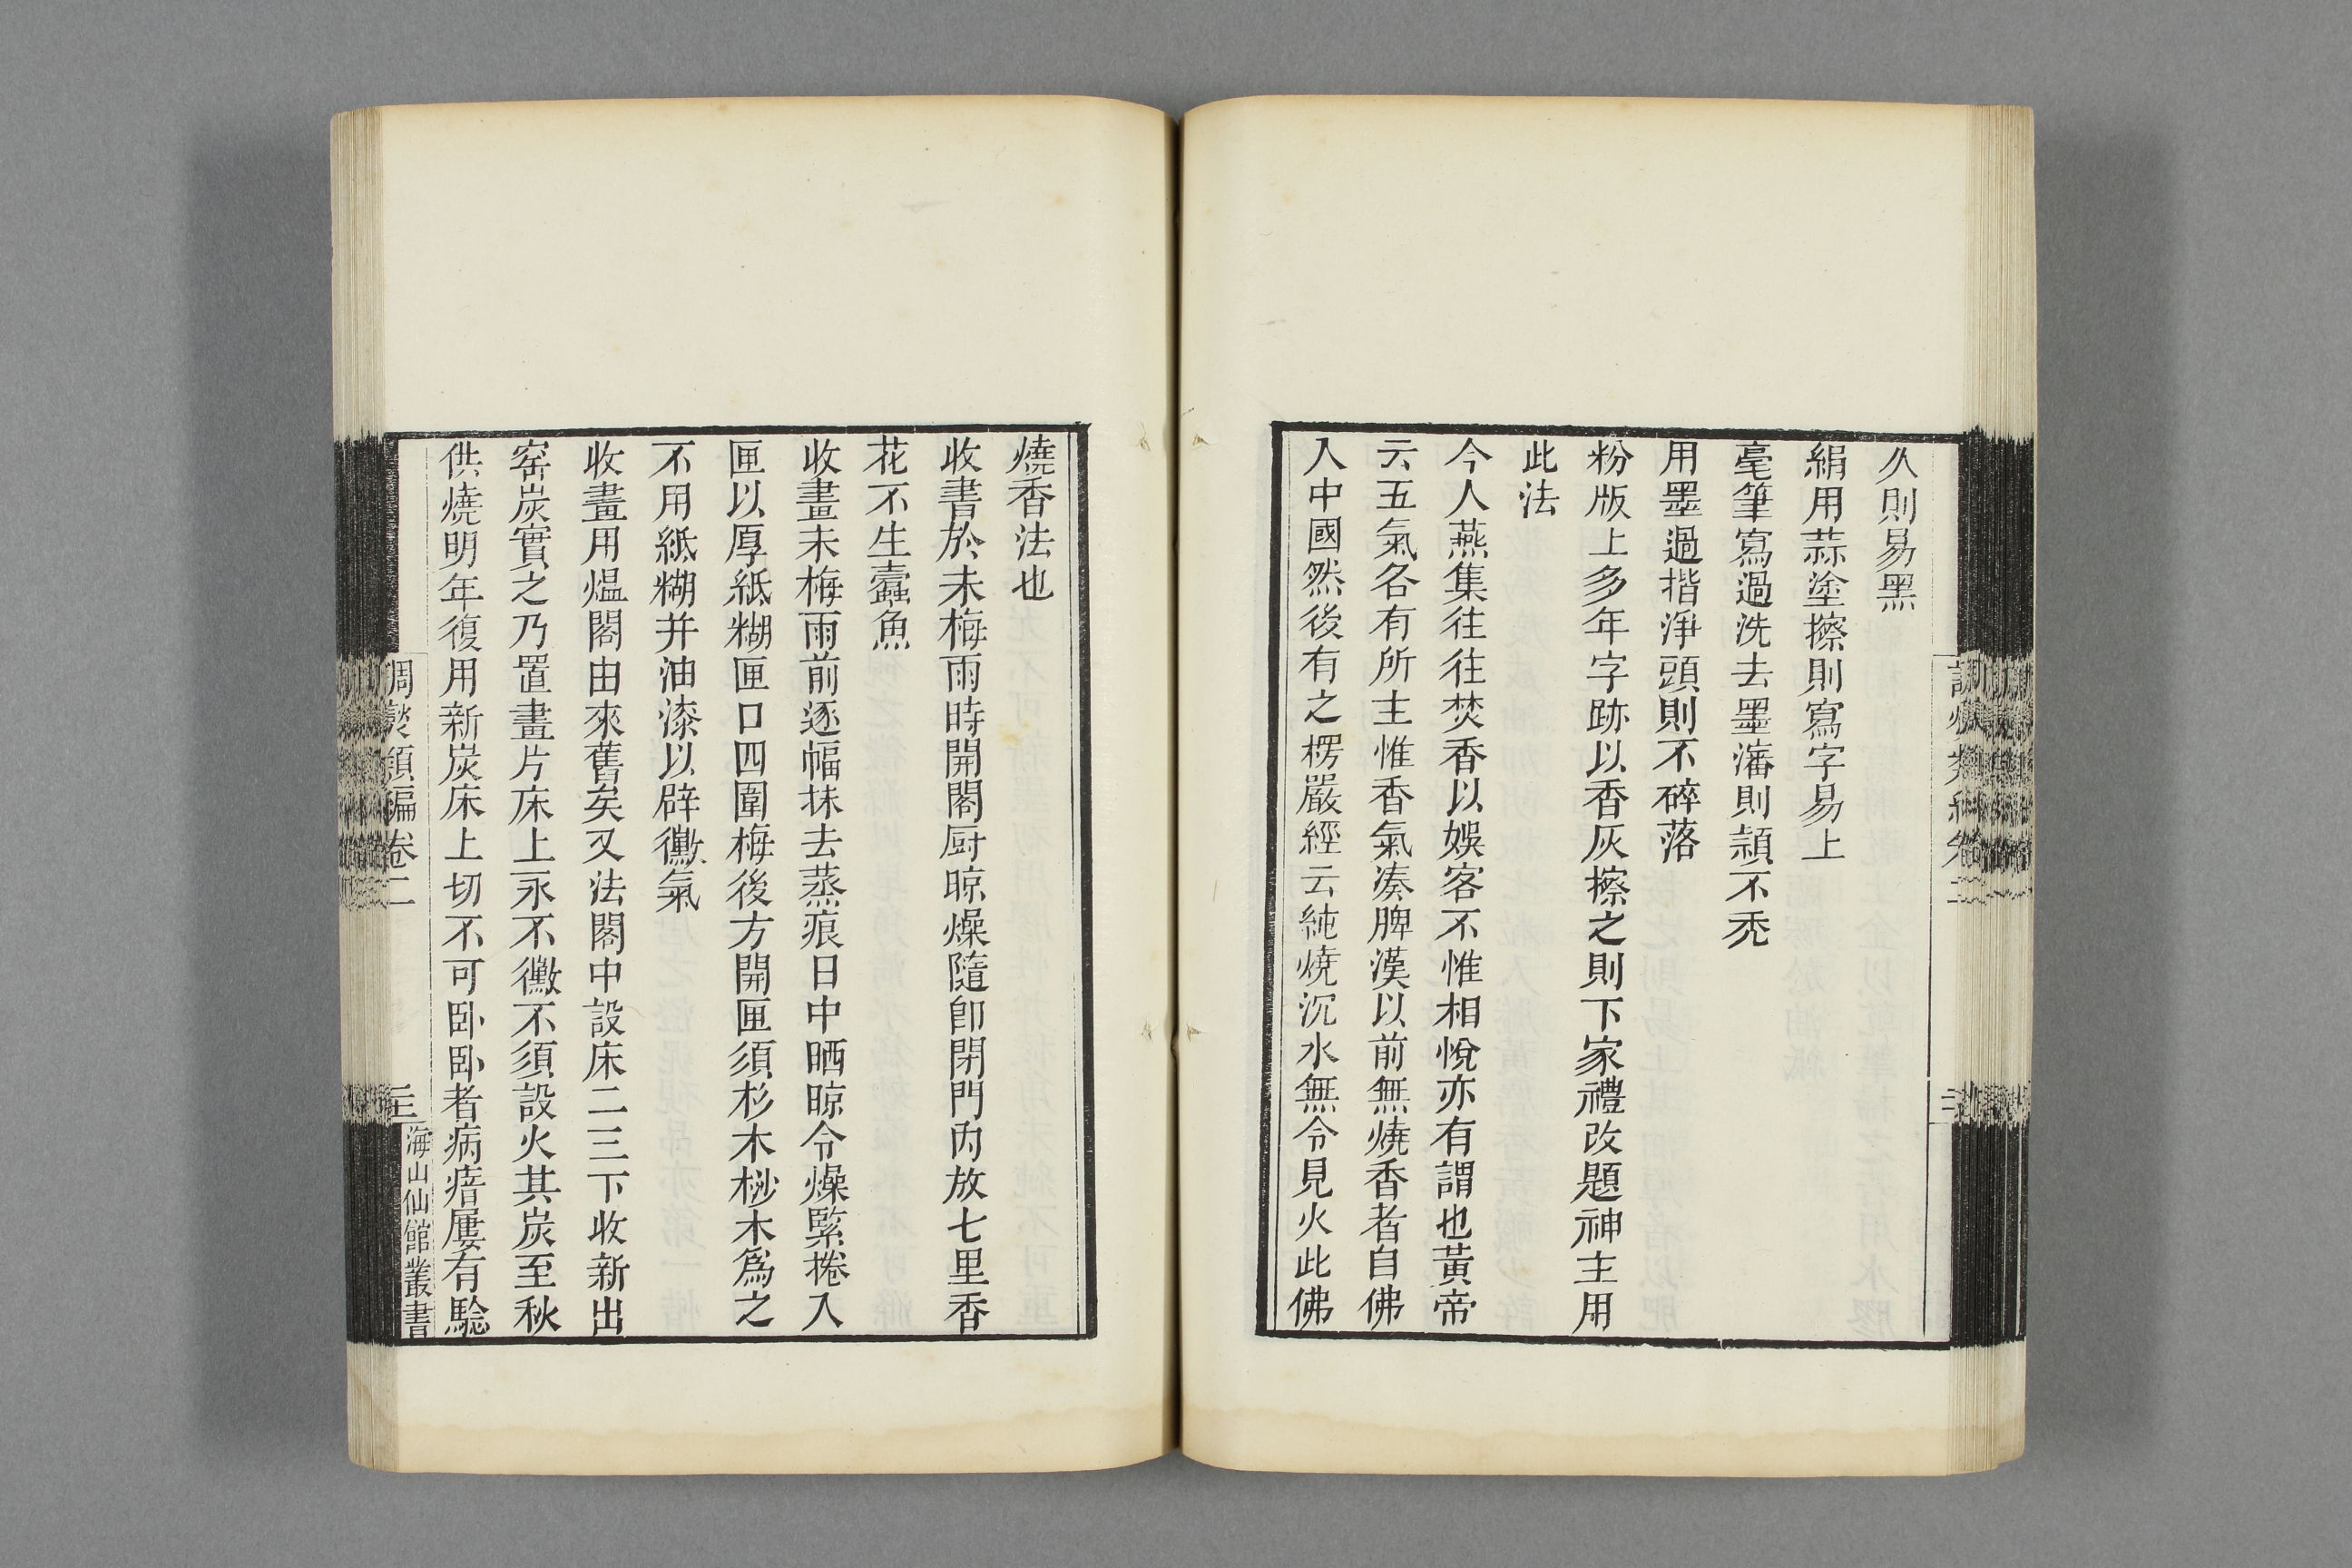 久則易黑
絹用蒜塗擦則寫字易上
毫筆寫過洗去墨瀋則頴不禿
用墨過揩淨頭則不碎落
粉版上多年字跡以香灰擦之則下家禮改題神主用
此法
今人燕集往往焚香以娛客不惟相悅亦有謂也黃帝
云五氣各有所主惟香氣湊脾漢以前無燒香者自佛
入中國然後有之楞嚴經云純燒沉水無令見火此佛
燒香法也
收書於未梅雨時開閣厨晾燥隨卽閉門內放七里香
花不生蠹魚
收畫未梅雨前逐幅抹去蒸痕日中晒晾令燥緊捲入
匣以厚紙糊匣口四圍梅後方開匣須杉木桫木爲之
不用紙糊并油漆以辟黴氣
收畫用熅閣由來舊矣又法閣中設床二三下收新出
窑炭實之乃置畫片床上永不黴不須設火其炭至秋
供燒明年復用新炭床上切不可卧卧者病瘖屢有騐
調燮類編卷二
海山仙館叢書